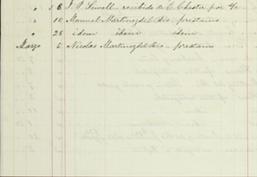 " 8 J. P. Sewall recibido de C. Chester por
" 10 Manuel Martinez del Rio prestamo
" 28 idem idem idem
Marzo 6 Nicolas Martinez del Rio prestamo